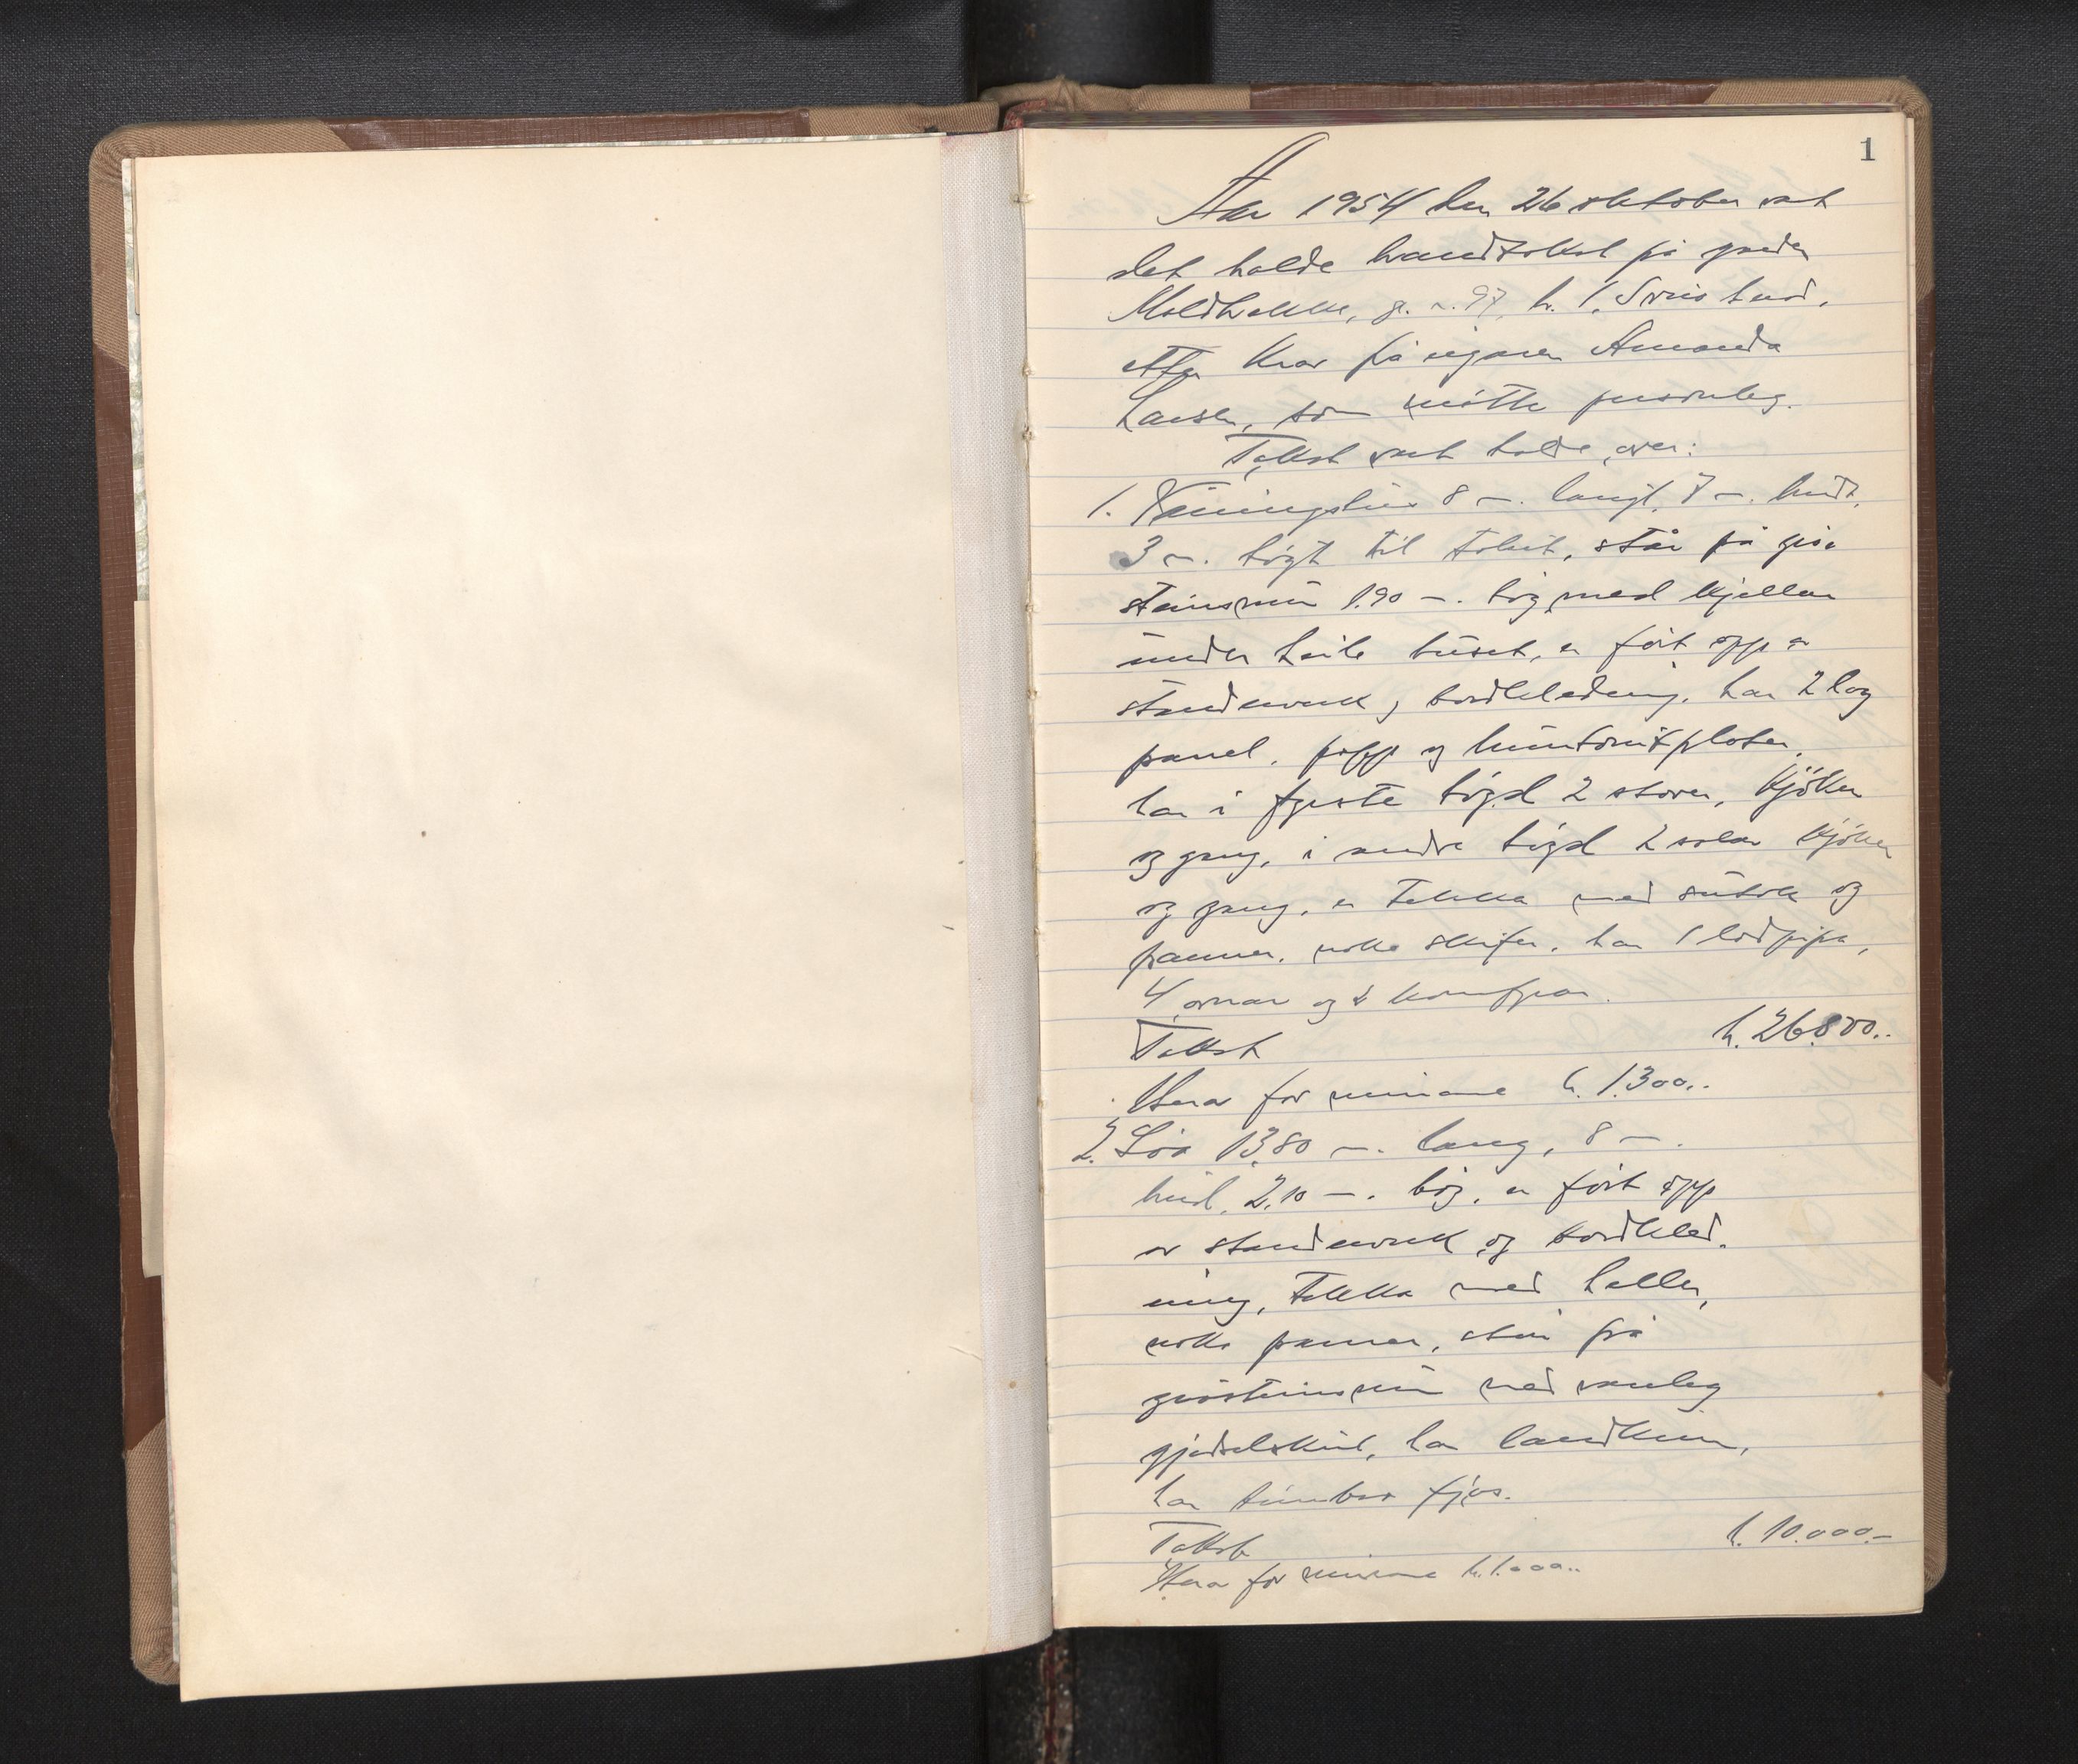 1
Aar 1954 den 26 oktober vart
det halde brandtakst på garden
Moldbakke, g. n. 97, br. 1,
etter krav frå eigaren Amanda
Larsen, som møtte personleg.
Takst vart halde over:
1. Våningshus 8 m. langt, 7 m. breidt,
3 m. høgt til taket, står på grå
steinsmur 1.90 m. høg, med kjellar
under heile huset, er ført opp a
standarverk, bordkledning, har 2 lag
panel, papp og huntonitplater,
har i fyrste høgd 2 stover, kjøken
og gang, i andre høgd 2 salar kjøken
og gang, er tekka med sutak og
panner, noke skifer, har 1 lodpipe,
4 omnar og 2 komfyrar.
Takst kr. 26.800..
Herav for murane kr. 1.300..
2. Løa 13.80 m. lang, 8 m.
breid, 2.10 m. høg, er ført opp
av standarverk og bordkled.
ning, tekka med heller,
noke panner, står på
gråsteinsmur med vanleg
gjødselskur, har landkum,
har timbra fjøs.
Takst kr. 10.000.-
Herav for murane kr. 1.000..